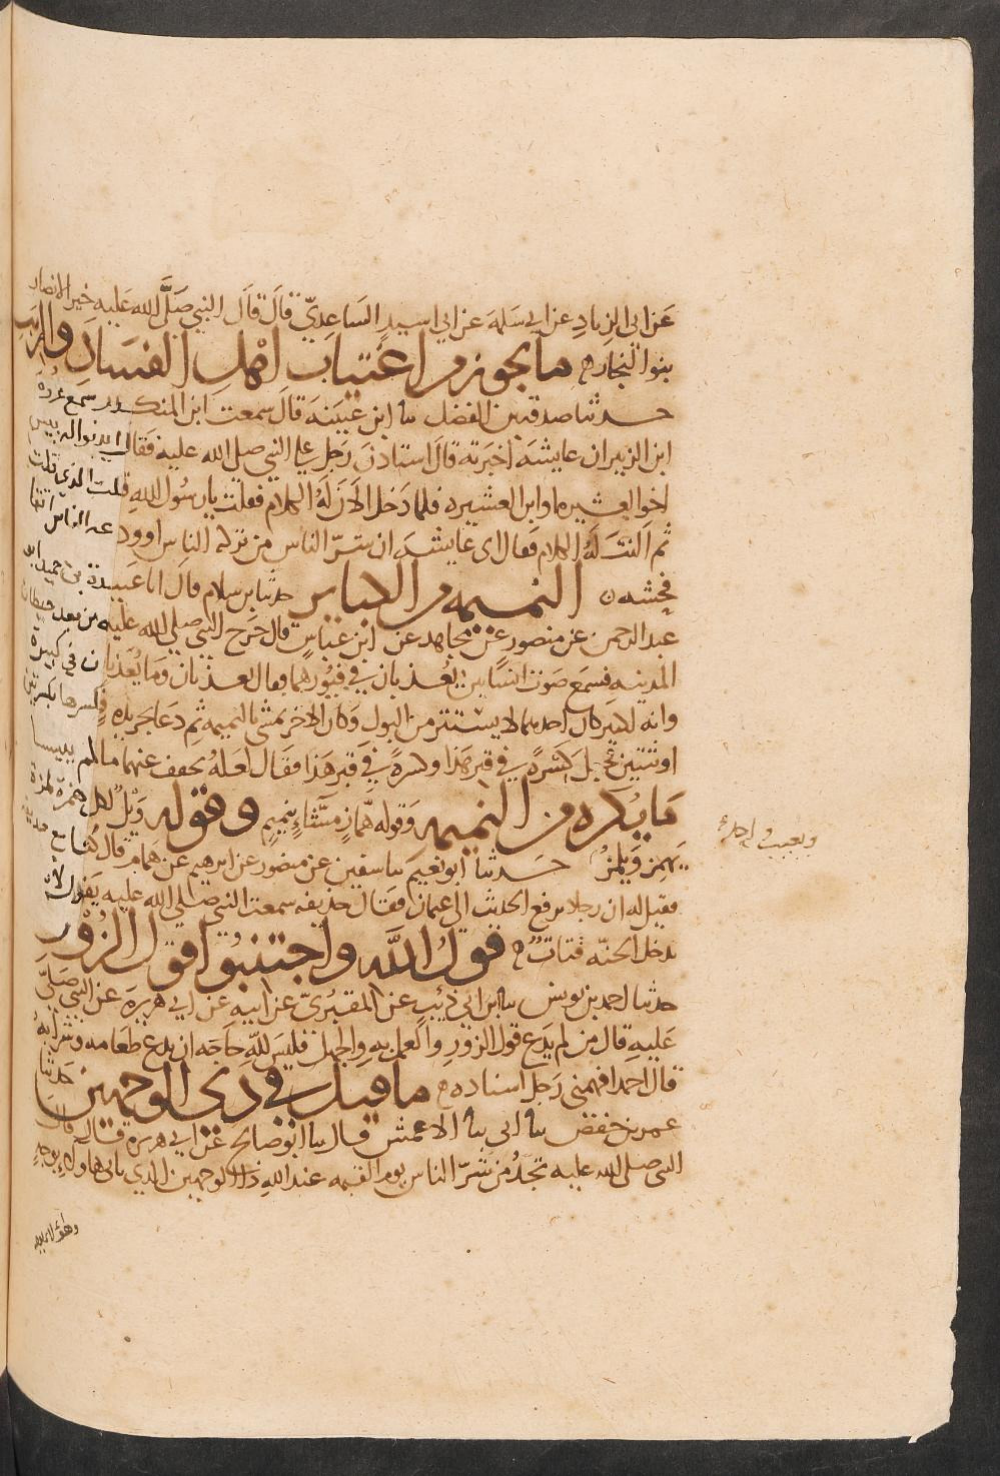 عن ابى الزناد عن ابى سلمة عن ابي اسيد الساعديّ قال قال النبي صلَّى الله عليه خير الانصار
بنوا النجار ما يجوز من اغتياب اهل الفساد والريب
حدثنا صدقة بن الفضل نا ابن عيينة قال سمعت ابن المنكدر سمع عروة
ابن الزبير ان عايشة اخبرته قال استاذن رجل على النبي صلى الله عليه فقال ايذنوا له بيس
اخو العشيرة او ابن العشيرة فلما دخل الان له الكلام فقلت يا رسول الله قلت الذي قلت
ثم النت له الكلام فقال اى عايشة ان شرّ الناس من تركه الناس او ودعه الناس اتقا
فحشه النميمة من الكباير حدثنا بن سلام قال انا عبيدة بن حميد ابو
عبد الرحمن عن منصور عن مجاهد عن ابن عباس قال خرج النبي صلى الله عليه من بعض حيطان
المدينة فسمع صوت انسانين يعذبان في قبورهما فقال يعذبان وما يعذبان في كبيرة
وانه لكبير كان احدهما لا يستتر من البول وكان الاخر يمشى بالنميمة ثم دعا بجريدة فكسرها بكسرتين
او ثنتين فجعل كسرة في قبر هذا وكسرة في قبر هذا فقال لعله يخفف عنهما ما لم ييبسا
ما يكره من النميمة وقوله همّاز مشّاء بنميم وقوله ويل لكل همزة لمزة
يهمز ويلمز حدثنا ابو نعيم نا سفين عن منصور عن ابرهيم عن همام قال كنا مع حذيفة
ويعيب واحد
فقيل له ان رجلا يرفع الحديث الى عثمان فقال حذيفة سمعت النبي صلى الله عليه يقول لا
يدخل الجنة قتات قول الله واجتنبوا قول الزور
حدثنا احمد بن يونس نا ابن ابى ذئب عن المقبريّ عن ابيه عن ابي هريرة عن النبي صلى
عليه قال من لم يدع قول الزور والعمل به والجهل فليس لله حاجة ان يدع طعامه وشرابه
قال احمد افهمنى رجل اسناده ما قيل في ذى الوجهين حدثنا
عمر بن حفص نا ابى نا الاعمش قال نا ابو صالح عن ابى هريرة قال قال
النبي صلى الله عليه تجد من شرّ الناس يوم القيمة عند الله ذا الوجهين الذي ياتى هاولاء بوجه
وهؤلاء بوجه